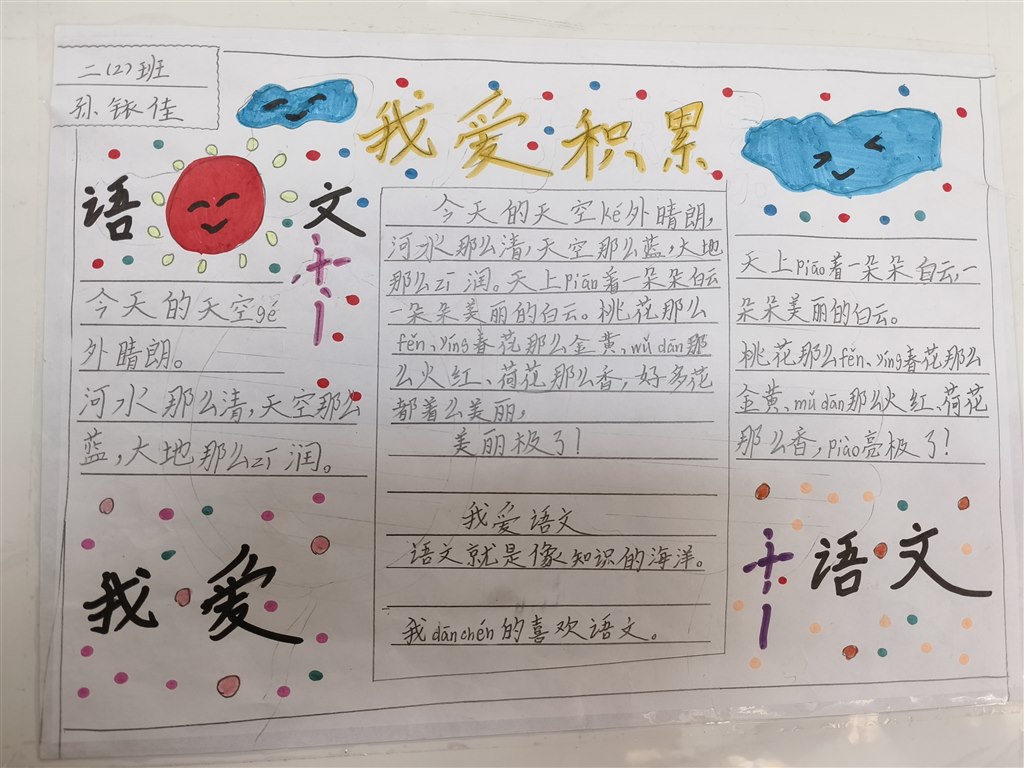 二(2)班
孙铱佳
我爱积累
语文
十一
今天的天空gé
外晴朗。
河水那么清,天空那么
蓝,大地那么zī润。
我爱
今天的天空ké外晴朗,
河水那么清,天空那么蓝,大地
那么zī润。天上piāo着一朵朵白云
一朵朵美丽的白云。桃花那么
fěn、yíng春花那么金黄、mǔdān那
么火红、荷花那么香,好多花
都着么美丽,
美丽极了!
我爱语文
语文就是像知识的海洋。
我dānchén的喜欢语文。
天上piāo着一朵朵白云,一
朵朵美丽的白云。
桃花那么fěn、yíng春花那么
金黄、mǔdān那么火红、荷花
那么香,piào亮极了!
十一
语文